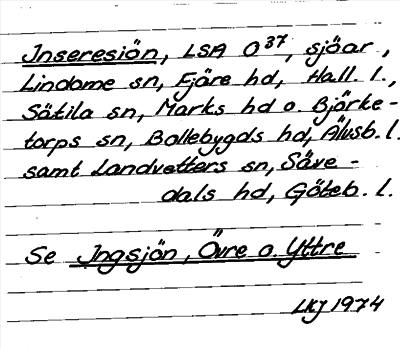 Inseresiön, LSA O 37, sjöar,
Lindome sn, Fjäre hd, Hall. l.,
Sätila sn, Marks hd o. Björke-
torps sn, Bollebygds hd, Älvsb. l.
samt Landvetters sn, Säve-
dals hd, Göteb. l.
Se Ingsjön, Övre o. Yttre
LKJ 1974